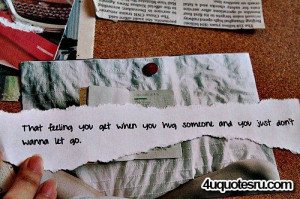 That feeling you get when you hug someone and you just don't
wanna let go.
4uquotesru.com